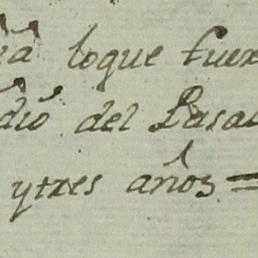 loque fuer
dió del Pasa
ytres años